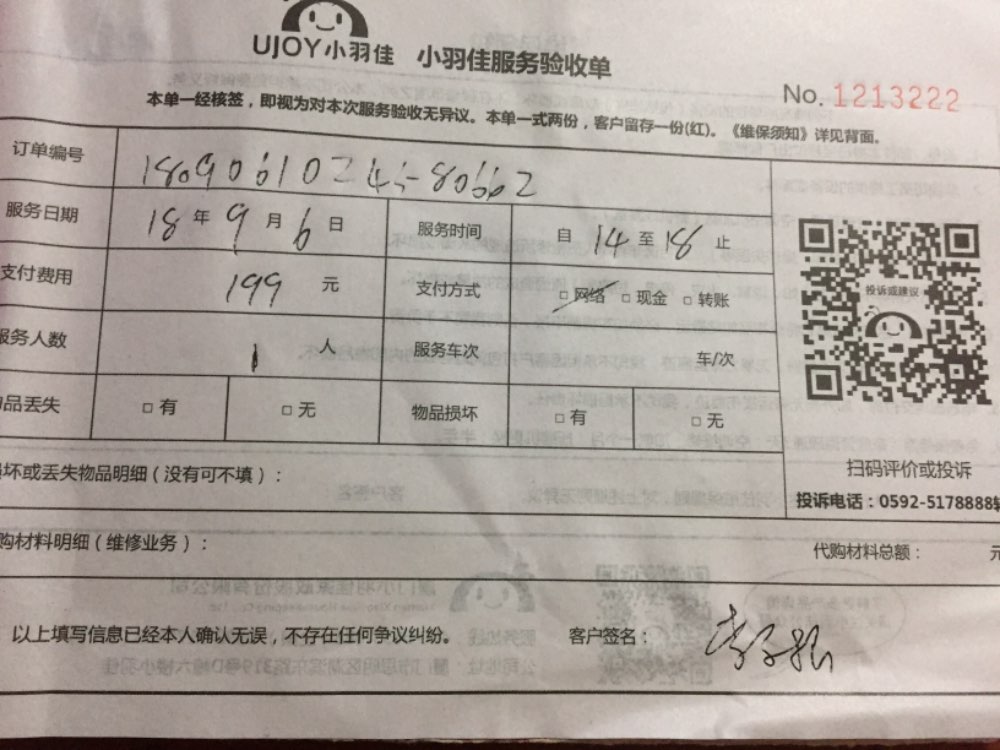 UJOY小羽佳 小羽佳服务验收单
No. 1213222
本单一经核签，即视为对本次服务验收无异议。本单一式两份，客户留存一份(红)。《维保须知》详见背面。
订单编号 18090610245-80662
服务日期 18 年 9 月 6 日 服务时间 自 14 至 18 止
支付费用 199 元 支付方式 □ 网络 □ 现金 □ 转账
服务人数 1 人 服务车次 车/次
品丢失 □ 有 □ 无 物品损坏 □ 有 □ 无
投诉或建议
扫码评价或投诉
投诉电话：0592-5178888转
坏或丢失物品明细（没有可不填）：
购材料明细（维修业务）： 代购材料总额： 元
以上填写信息已经本人确认无误，不存在任何争议纠纷。 客户签名：